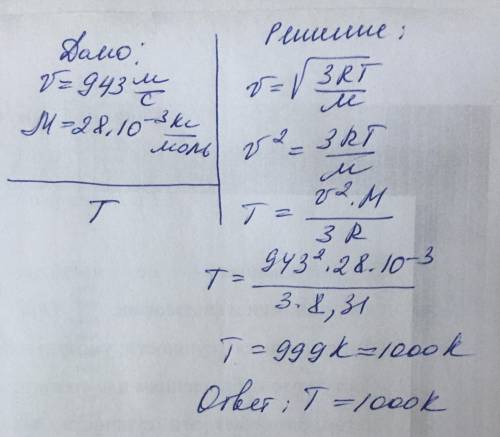 Дано:
v = 943 м/с
M = 28.10⁻³ кг/моль
T
Решение:
v = √(3RT/M)
v² = 3RT/M
T = v²·M/3R
T = 943²·28·10⁻³/3·8,31
T = 999K = 1000K
Ответ: T = 1000K